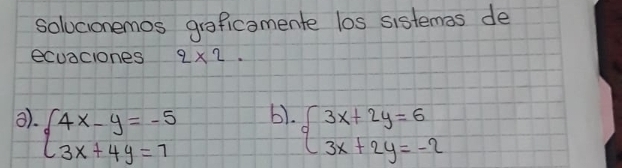 solucionemos graficamente los sistemas de
ecuaciones 2x2.
a). { 4x - y = -5      b). { 3x + 2y = 6
3x + 4y = 7      3x + 2y = -2